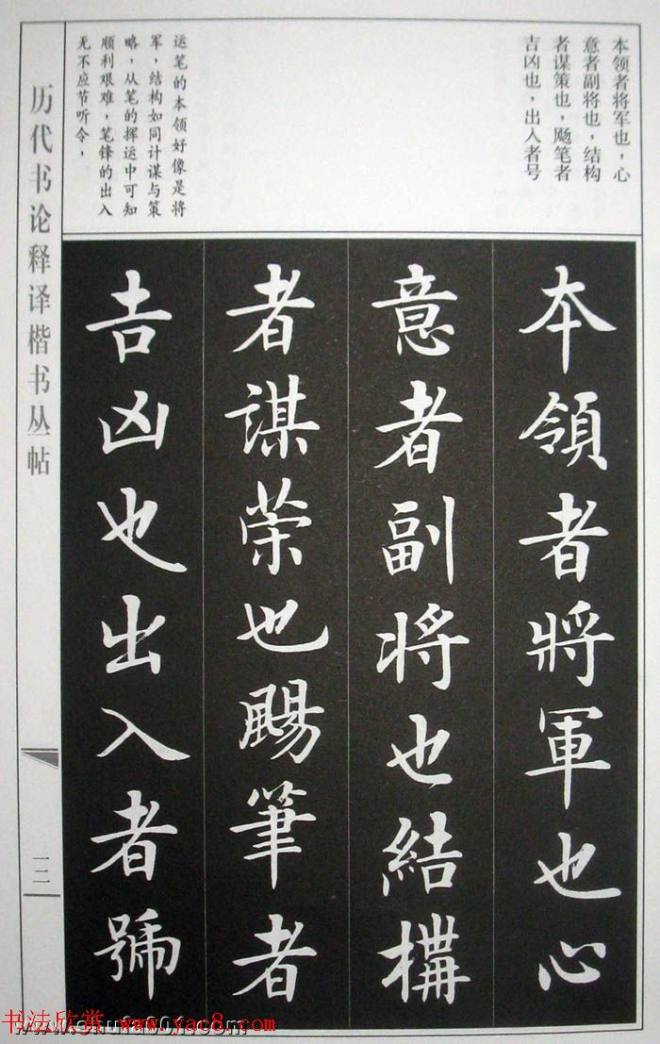 本领者将军也，心
意者副将也，结构
者谋策也，飏笔者
吉凶也，出入者号
运笔的本领好像是将
军，结构如同计谋与策
略，从笔的挥运中可知
顺利艰难，笔锋的出入
无不应节听令，
本領者將軍也心
意者副将也結構
者謀策也颺筆者
吉凶也出入者號
历代书论释译楷书丛帖
一二
书法欣赏 www.yac8.com